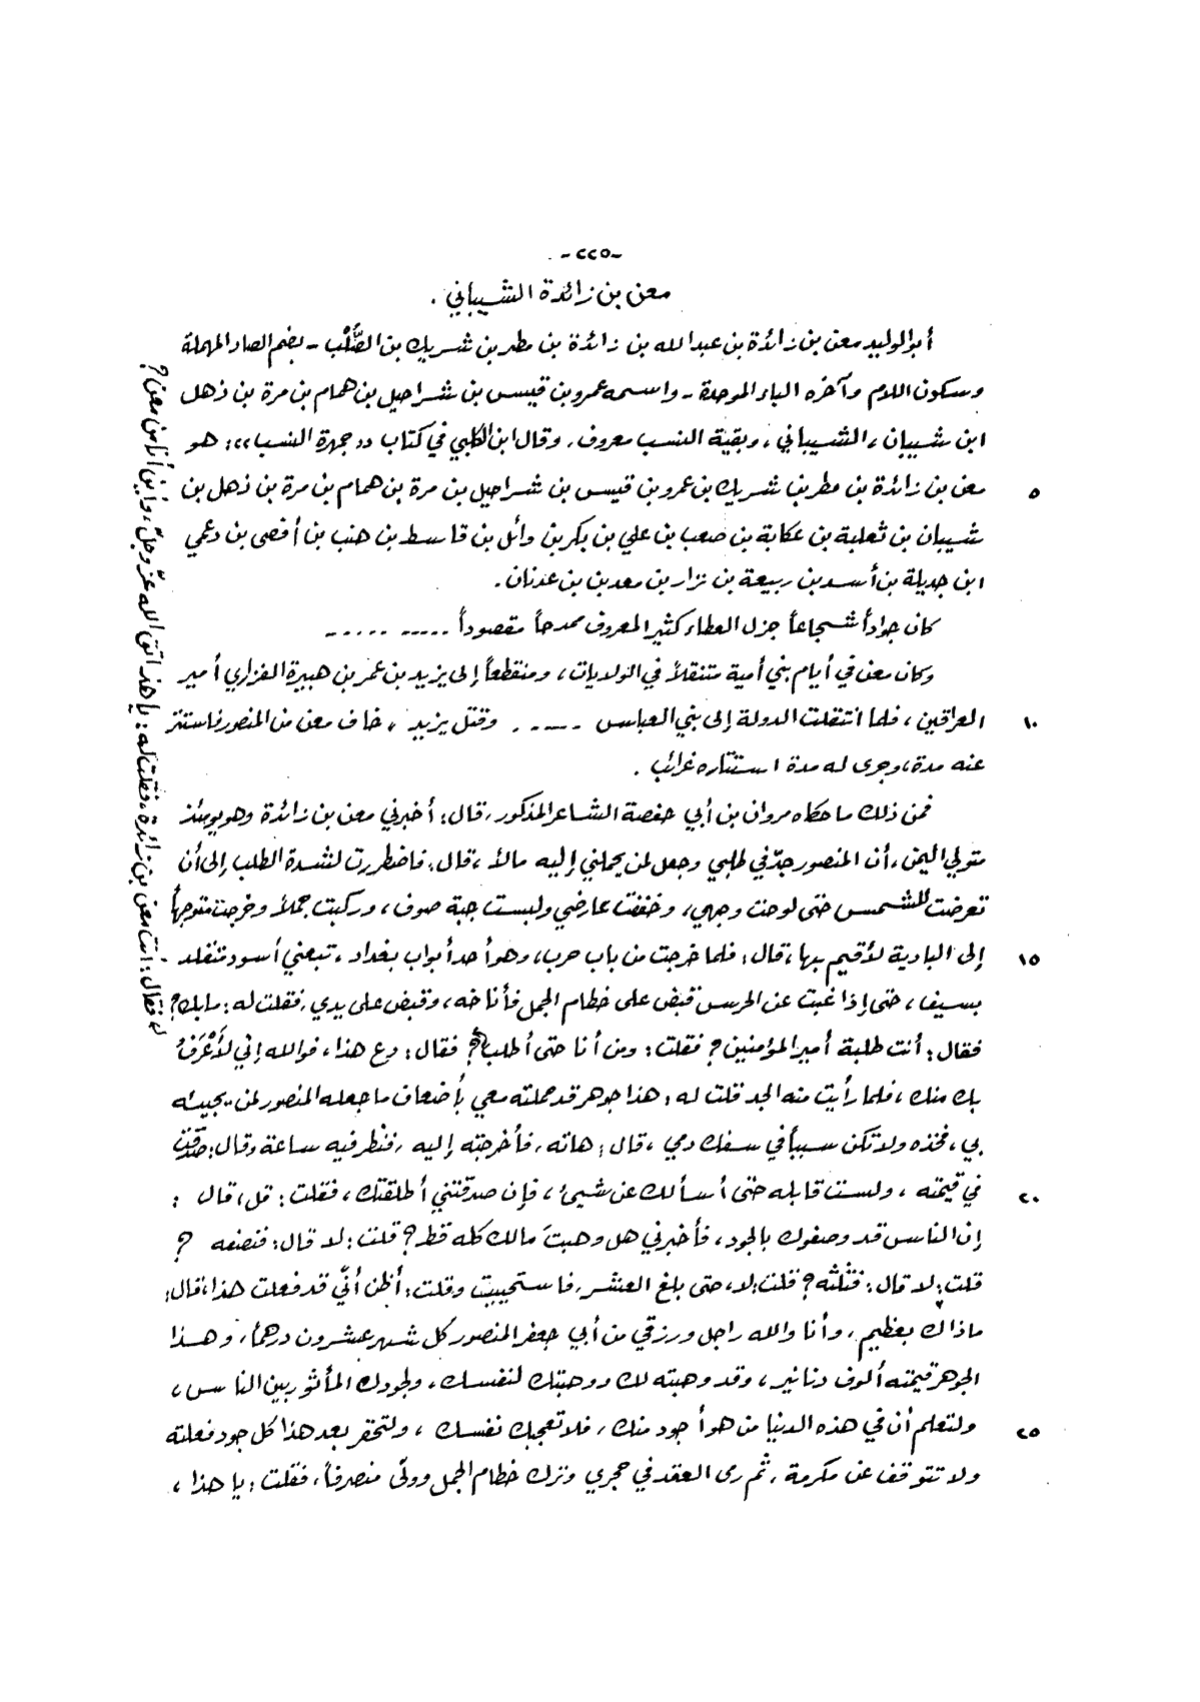 -٢٢٥-
معن بن زائدة الشيباني .
أبو الوليد معن بن زائدة بن عبدالله بن زائدة بن مطر بن شريك بن الصُّلْب - بضم الصاد المهملة
وسكون اللام وآخره الباء الموحدة - واسمه عمرو بن قيس بن شراحيل بن همام بن مرة بن ذهل
ابن شيبان، الشيباني، وبقية النسب معروف. وقال ابن الكلبي في كتاب «جمهرة النسب»: هو
٥ معن بن زائدة بن مطر بن شريك بن عمرو بن قيس بن شراحيل بن مرة بن همام بن مرة بن ذهل بن
شيبان بن ثعلبة بن عكابة بن صعب بن علي بن بكر بن وائل بن قاسط بن هنب بن أفصى بن دعمي
ابن جديلة بن أسد بن ربيعة بن نزار بن معد بن عدنان.
كان جواداً شجاعاً جزل العطاء كثير المعروف ممدحاً مقصوداً ..... .....
وكان معن في أيام بني أمية متنقلاً في الولايات، ومنقطعاً إلى يزيد بن عمر بن هبيرة الفزاري أمير
١٠ العراقين، فلما انتقلت الدولة إلى بني العباس ..... وقتل يزيد، خاف معن من المنصور فاستتر
عنه مدة، وجرى له مدة استتاره غرائب .
فمن ذلك ما حكاه مروان بن أبي حفصة الشاعر المذكور، قال: أخبرني معن بن زائدة وهو يومئذ
متولي اليمن، أن المنصور جدّ في طلبي وجعل لمن يحملني إليه مالاً، قال: فاضطررت لشدة الطلب إلى أن
تعرضت للشمس حتى لوحت وجهي، وخففت عارضي ولبست جبة صوف، وركبت جملاً وخرجت متوجهاً
١٥ إلى البادية لأقيم بها، قال: فلما خرجت من باب حرب، وهو أحد أبواب بغداد، تبعني أسود متقلد
بسيف، حتى إذا غبت عن الحرس قبض على خطام الجمل فأناخه، وقبض على يدي، فقلت له: مابك؟
فقال: أنت طلبة أمير المؤمنين؟ فقلت: ومن أنا حتى أطلب؟ فقال: دع هذا، فوالله إني لأَعْرَفُ
بك منك، فلما رأيت منه الجد قلت له: هذا جوهر قد حملته معي بأضعاف ما جعله المنصور لمن يجيئه
بي، فخذه ولا تكن سبباً في سفك دمي، قال: هاته، فأخرجته إليه، فنظر فيه ساعة وقال: صدقت
٢٠ في قيمته، ولست قابله حتى أسألك عن شيئ، فإن صدقتني أطلقتك، فقلت: قل، قال :
إن الناس قد وصفوك بالجود، فأخبرني هل وهبتَ مالك كله قط؟ قلت: لا قال: فنصفه ؟
قلت: لا قال: فثلثه؟ قلت: لا، حتى بلغ العشر، فاستحييت وقلت: أظن أنّي قد فعلت هذا، قال:
ماذاك بعظيم، وأنا والله راجل ورزقي من أبي جعفر المنصور كل شهر عشرون درهماً، وهذا
الجوهر قيمته ألوف دنانير، وقد وهبته لك ووهبتك لنفسك، ولجودك المأثور بين الناس،
٢٥ ولتعلم أن في هذه الدنيا من هو أجود منك، فلا تعجبك نفسك، ولتحقر بعد هذا كل جود فعلته
ولا تتوقف عن مكرمة، ثم رمى العقد في حجري وترك خطام الجمل وولّى منصرفاً، فقلت: يا هذا،
له فقال: أنت معن بن زائدة، فقلت له: يا هذا اتق الله عزّ وجلّ، وأين أنا من معن؟